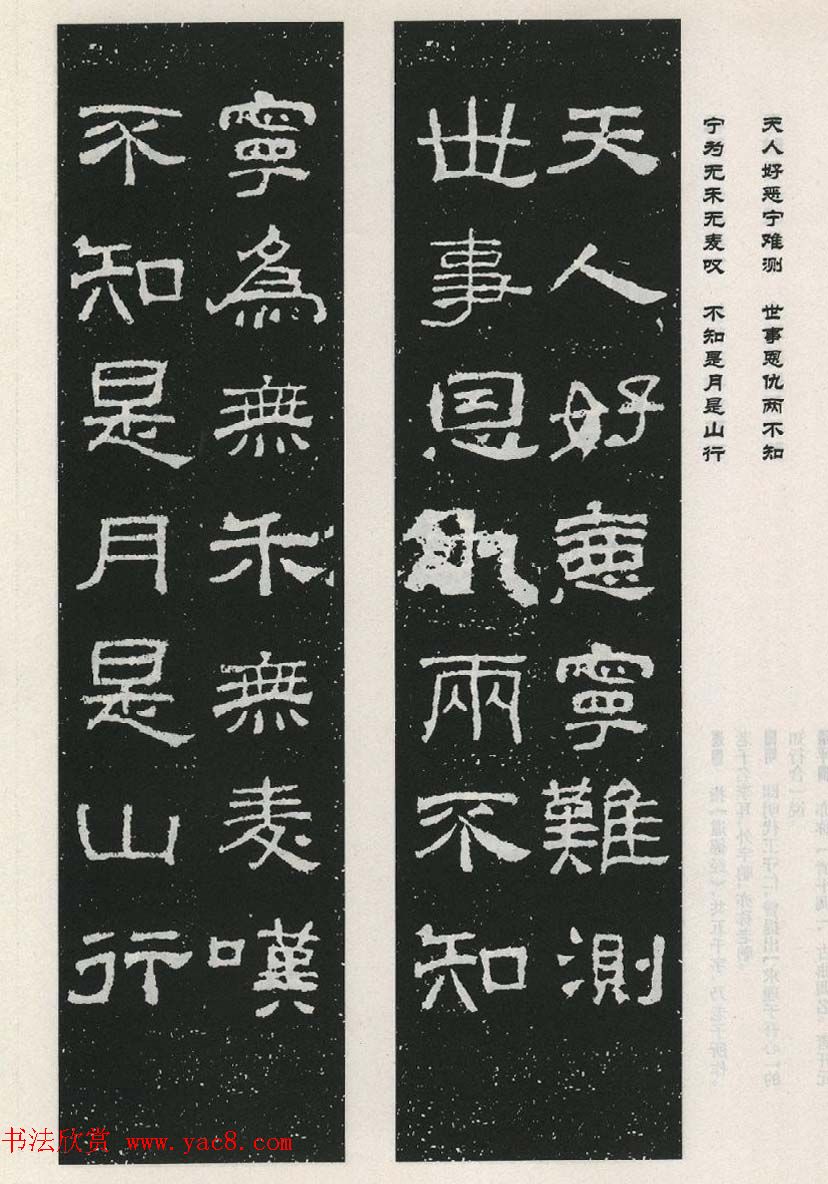 天人好恶宁难测 世事恩仇两不知
宁为无禾无麦叹 不知是月是山行
天人好惡寧難測
世事恩仇兩不知
寧為無禾無麦嘆
不知是月是山行
书法欣赏 www.yac8.com